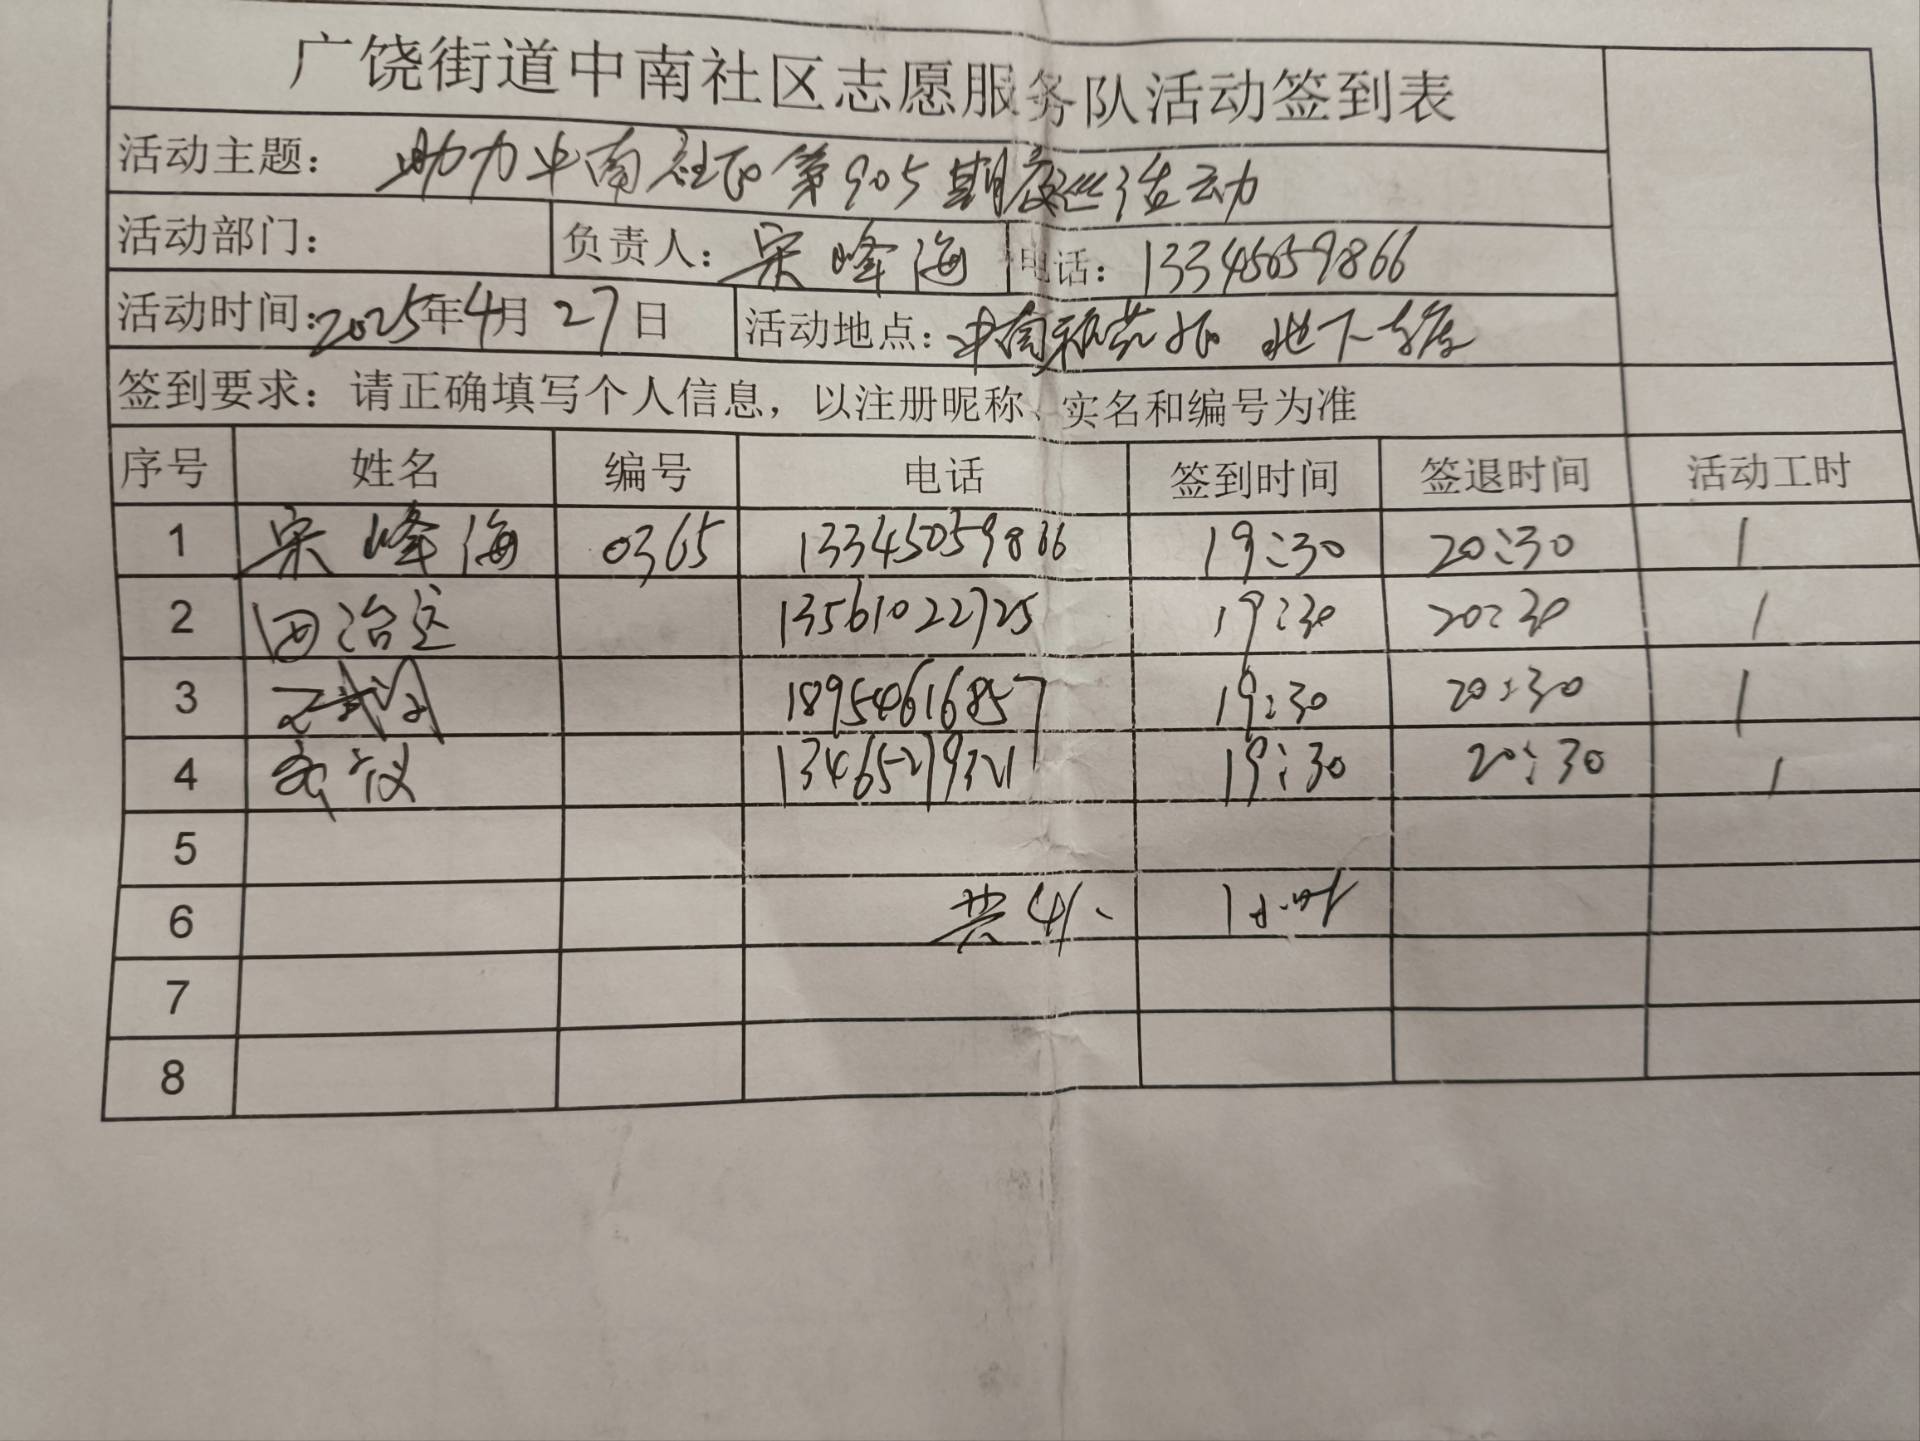 广饶街道中南社区志愿服务队活动签到表
活动主题： 助力中南社区第905期夜巡活动
活动部门： 负责人：宋峰海 电话：13345059866
活动时间：2025年4月27日 活动地点：中南 地下车库
签到要求：请正确填写个人信息，以注册昵称、实名和编号为准
序号 姓名 编号 电话 签到时间 签退时间 活动工时
1 宋峰海 0365 13345059866 19:30 20:30 1
2 田治 13561022725 19:30 20:30 1
3 18954616857 19:30 20:30 1
4 13465279321 19:30 20:30 1
5
6 共4人 1小时
7
8